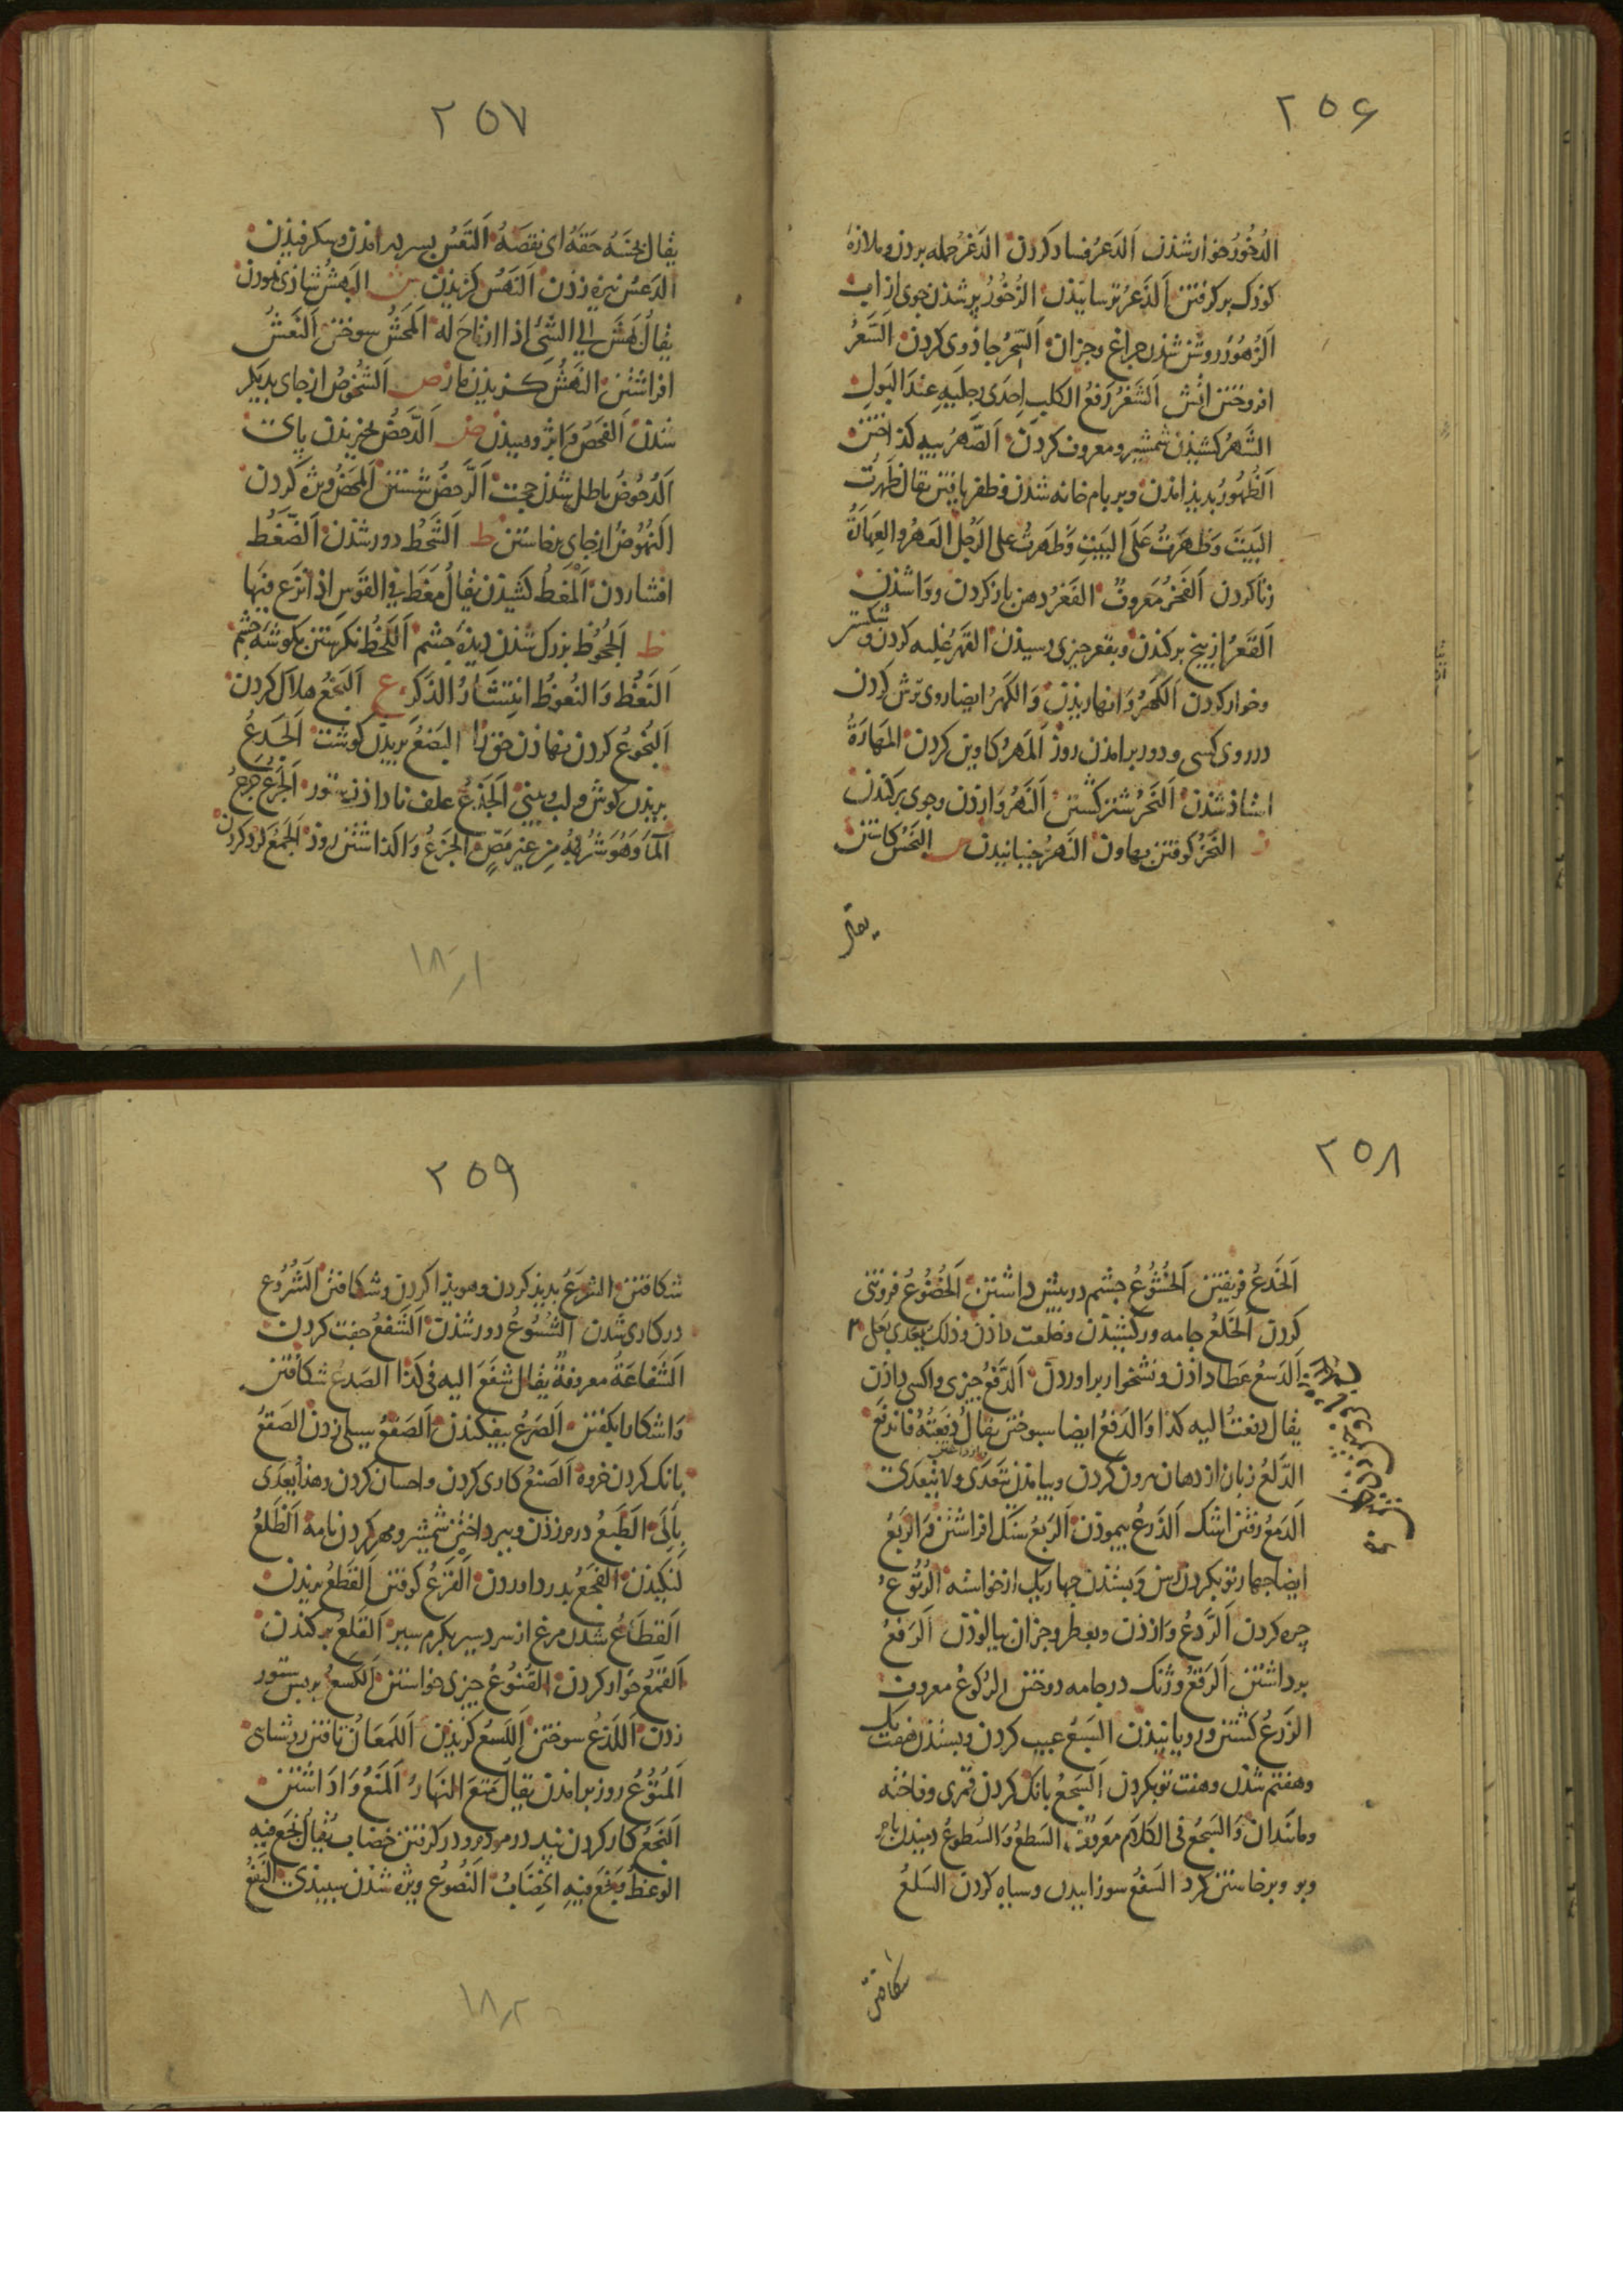 ۲۵۶
الدُخُورُ خوار شذن الدَعرُ فساد کردن الدَغرُ حمله بردن و ملازهٔ
کوذک برکرفتن الذَعرُ ترسانیذن الزُخُورُ پر شذن جوی از اب
الزُهُورُ روشن شذن چراغ و جزان السِّحرُ جاذوی کردن السَّعرُ
افروختن اتش الشَغرُ رَفعُ الکلبِ اِحدَی رِجلَیهِ عِندَ البَولِ
الشَهرُ کشیذن شمشیر و معروف کردن الصَّهرُ پیه کذاختن
الظُهُورُ بدیذ امذن و بر بام خانه شذن و ظفر یافتن یقال ظَهَرتُ
البَیتَ وَظَهَرتُ عَلَی البَیتِ وَظَهَرتُ علی الرَجُل العَهرُ والعِهَارَةُ
زنا کردن الفَخرُ معَروفٌ الفَغرُ دهن باز کردن و وا شذن
القَعرُ از بیخ برکندن و بقعر چیزی رسیذن القَهرُ غلبه کردن و شکستن
و خوار کردن الکَهرُ وَانهاریذن وَالکَهرُ ایضا روی ترش کردن
در روی کسی و دور برامذن روز المَهرُ کاوین کردن المَهَارَةُ
استاذ شذن النَحرُ شتر کشتن النَهرُ وَازذن و جوی برکندن
ز النَحزُ کوفتن بهاون النَهزُ جنبانیدن س البَخسُ کاستن
یقال
۲۵۷
یقال بَخَسَهُ حَقَّهُ ای نقصَهُ التَعسُ بسر در امذن و شکرفیذن
الدَعسُ نیزه زذن النَهسُ کزیذن ش البَهشُ شاذی نمودن
یقالُ بَهَشَ الی الشَیُ اذا ارتاحَ له المَحشُ سوختن النَعشُ
افراشتن النَهشُ کزیذن مار ص الشُخُوصُ از جای بدیکر
شذن الفَحصُ وَابژوهیذن ض الدَّحضُ لخزیذن پای
الدُحُوضُ باطل شذن حجت الرَّحضُ شستن المَحضُ ویژه کردن
النُهُوضُ از جای برخاستن ط الشَحطُ دور شذن الضَّغطُ
افشاردن المَغطُ کشیذن یُقالُ مَغَطَ فی القَوس اذا نزَع فیهَا
ظ الجُحُوظ بزرک شذن دیذهٔ چشم اللَحظُ نکرستن بکوشهٔ چشم
النَعظُ وَالنُعُوظُ انتِشَارُ الذَکرِ ع البَخعُ هلاک کردن
البُخُوعُ کردن نهاذن حق را البَضعُ بریذن کوشت الجَدعُ
بریذن کوش و لب و بینی الجَذعُ علف ناداذن ستور الجَرعُ جَرعُ
المآ وَهُوَ شُربُهُ مِن غیر مَصٍّ الجَزعُ وَا کذاشتن روذ الجَمعُ کرد کردن
۱۸ر۱
۲۵۸
الخَدعُ فریفتن الخُشُوعُ چشم در پیش داشتن الخُضُوعُ فروتنی
کردن الخَلعُ جامه و رکشیذن و خلعت داذن و ذلک یعدی بعلی
الدَسعُ عَطا داذن و نشخوار براوردن الدَفعُ چیزی واکسی داذن
یقال دفعتُ الیه کذا وَالدَفعُ ایضا سبوختن یقالُ دَفعَتُهُ فاندفَع
الدَلعُ زبان از دهان برون کردن و بیامذن یَتَعَدَی ولا یتَعدَی
الدَمعُ رفتن اشک الذَرعُ پیموذن الرَبعُ سنک افراشتن وَالرَبعُ
ایضا چهار تو بکردن رسن وَبستذن چهار یک از خواسته الرُتُوعُ
چره کردن الرَّدعُ وَازذن و بعطر و جزان بیالوذن الرَفعُ
برداشتن الرَقعُ وژنک در جامه دوختن الرُکُوعُ معروف
الزَرعُ کشتن و رویانیذن السَبعُ عیب کردن و بستذن هفت یک
و هفتم شذن و هفت تو بکردن السَجعُ بانک کردن قمری و فاخته
و مانند ان وَالسَجعُ فی الکلام مَعروفٌ السَطعُ وَالسُطوعُ دمیذن بام
و بو و برخاستن کرد السَفعُ سوزانیدن و سیاه کردن السَلعُ
شکافتن
۲۵۹
شکافتن الشَرعُ بدیذ کردن و هویذا کردن و شکافتن الشُرُوع
در کاری شذن الشُسُوعُ دور شذن الشَفعُ جفت کردن
الشَفاعَةُ معروفةٌ یقال شفَعَ الیه فی کذا الصَدعُ شکافتن
وَاشکارا بکفتن الصَرعُ بیفکندن الصَفعُ سیلی زدن الصَقعُ
بانک کردن خروه الصَنعُ کاری کردن و احسان کردن وهذا یُعدَی
بِالی الطَبعُ درم زذن و بپرداختن شمشیر و مهر کردن نامه الظَلعُ
لنکیذن الفَجعُ بدرد اوردن القَرعُ کوفتن القَطعُ بریذن
القِطَاعُ شذن مرغ از سردسیر بکرم سیر القَلعُ برکندن
القَمعُ خوار کردن القُنُوعُ چیزی خواستن الکَسعُ بر پس ستور
زدن اللَذعُ سوختن اللَسعُ کزیذن اللَمعَانُ تافتن روشنایی
المُتُوعُ روز برامذن یقال مَتَعَ النهَارُ المَنعُ وَاداشتن
النَجعُ کار کردن پند در مردم و در کرفتن خضاب یُقالُ نجَع فیهِ
الوَعظُ وَنجَعَ فیهِ الخِضَابُ النُصُوعُ ویژه شذن سپیذی النَفعُ
۱۸ر۲